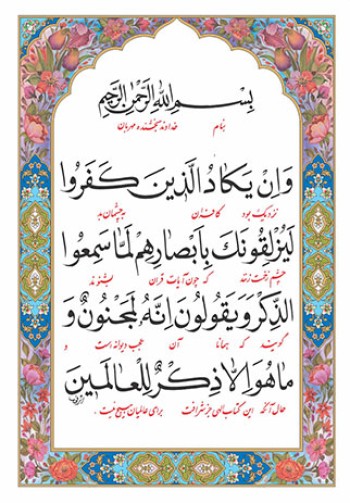 بِسْمِ اللهِ الرَّحْمٰنِ الرَّحِيمِ
بنام خداوند بخشنده مهربان
وَاِنْ يَكَادُ الَّذينَ كَفَرُوا
نزدیک بود کافران به چشمان بد
لَيُزْلِقُونَكَ بِاَبْصارِهِمْ لَمَّا سَمِعُوا
چشم زخمت زنند که چون آیات قرآن بشنوند
الذِّكْرَ وَيَقُولُونَ اِنَّهُ لَمَجْنُونٌ وَ
گویند که همانا آن عجب دیوانه است و
ما هُوَ اِلاّ ذِكْرٌ لِلْعالَمينَ
حال آنکه این کتاب الهی جز شرافت برای عالمیان هیچ نیست .